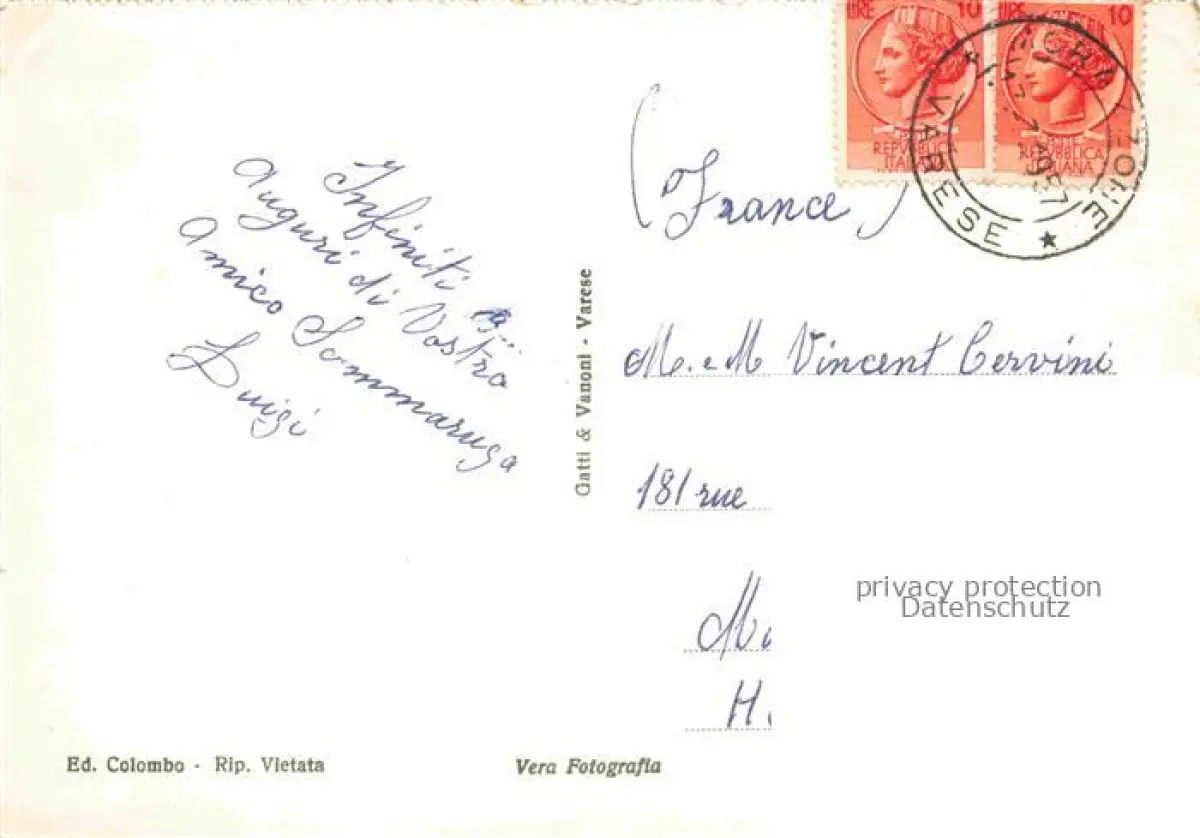 Infiniti
Auguri di Vostro
Amico Sommaruga
Luigi
Gatti & Vanoni - Varese
LIRE 10
LIRE 10
REPVBBLICA
ITALIANA
REPVBBLICA
ITALIANA
VARESE
1957
(France)
M. e M Vincent Cervini
181 rue
M
H.
privacy protection
Datenschutz
Ed. Colombo - Rip. Vietata
Vera Fotografia